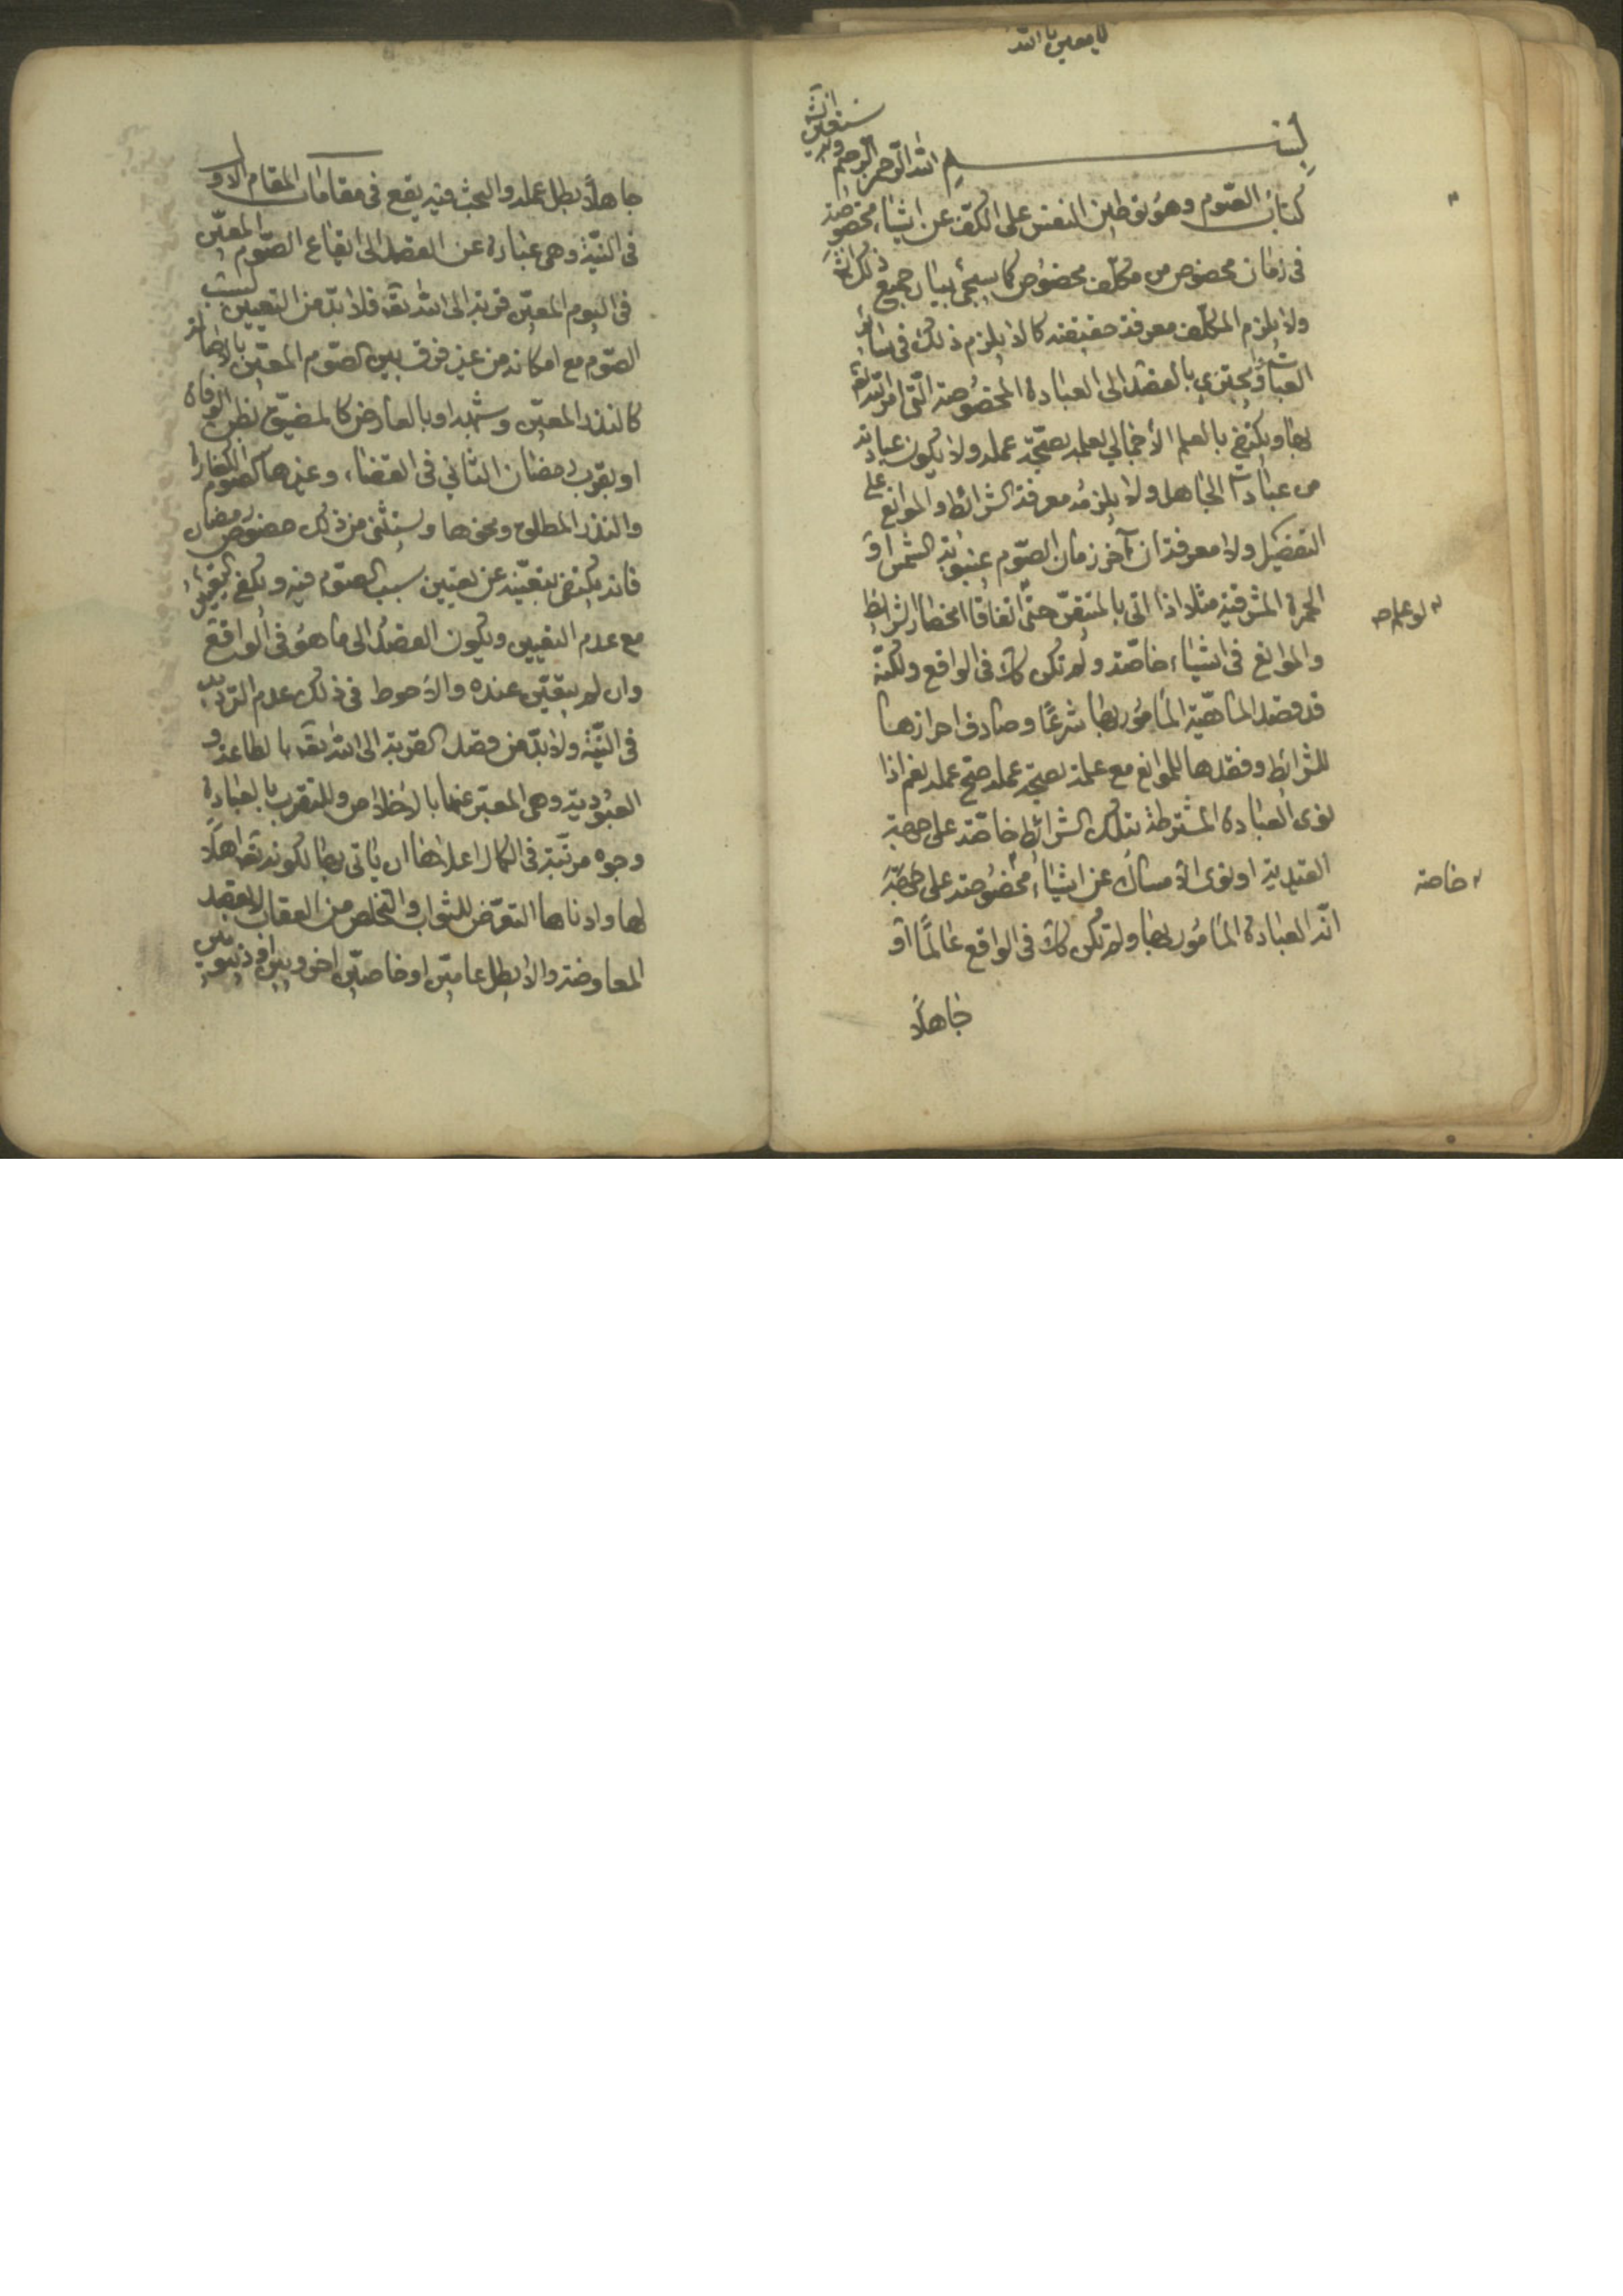 يا معين يا الله
بسم الله الرحمن الرحيم وبه نستعين
كتاب الصّوم وهو توطين النفس على الكفّ عن اشياء مخصوصة
فى زمان مخصوص من مكلّف مخصوص كما سيجئ بيان جميع ذلك انش
ولا يلزم المكلّف معرفة حقيقته كما لا يلزم ذلك فى سائر
العبادات ويجتزي بالقصد الى العبادة المخصوصة الّتى امر الله تعالى
بها ويكتفى بالعلم الاجمالي بعلمه بصحّة عمله ولا يكون عباداته
من عبادات الجاهل ولا يلزمه معرفة الشرائط والموانع على
التفصيل ولا معرفة ان آخر زمان الصّوم غيبوبة الشمس او
الحمرة المشرقية مثلا اذا اتى بالمتيقن حتّى اتفاقا انحصار الشرائط
والموانع فى اشياء خاصّة ولم تكن كك فى الواقع ولكنّه
قد قصد الماهيّة المأمور بها شرعًا وصادف احرازها
للشرائط وفقدها للموانع مع علمه بصحّة عمله صحّ عمله نعم اذا
نوى العبادة المشترطة بتلك الشرائط خاصّة على جهة
القيديّة او نوى الامساك عن اشياء مخصوصة على جهة
انّه العبادة المأمور بها ولم تكن كك فى الواقع عالمًا او
جاهلًا
لو علم صه
خاصة
جاهلًا بطل عمله والبحث فيه يقع فى مقامات المقام الاول
فى النيّة وهى عبارة عن القصد الى ايقاع الصّوم المعيّن
فى اليوم المعيّن قربة الى الله تعالى فلا بدّ من التعيين لسبب
الصّوم مع امكانه من غير فرق بين الصّوم المعيّن بالاصالة
كالنذر المعيّن وشبهه او بالعارض كالمضيّق بظن الوفاة
او بقرب رمضان الثاني فى القضاء وغيرها كصوم الكفارة
والنذر المطلق ونحوها ويستثنى من ذلك خصوص رمضان
فانه يكتفى بتعيّنه عن تعيين سبب الصّوم فيه ويكفى
مع عدم التعيين ويكون القصد الى ما هو فى الواقع
وان لم يتعيّن عنده والاحوط فى ذلك عدم الترديد
فى النيّة ولا بدّ من قصد القربة الى الله تعالى بالطاعة و
العبوديّة وهى المعبّر عنها بالاخلاص وللتقرب بالعبادة
وجوه مرتّبة فى الكمال اعلاها ان ياتى بها لكونه تعالى اهلًا
لها وادناها التعرّض للثواب والتخلص من العقاب لا بقصد
المعاوضة والا بطل عاميّن او خاصيّن اخرويين او دنيويين